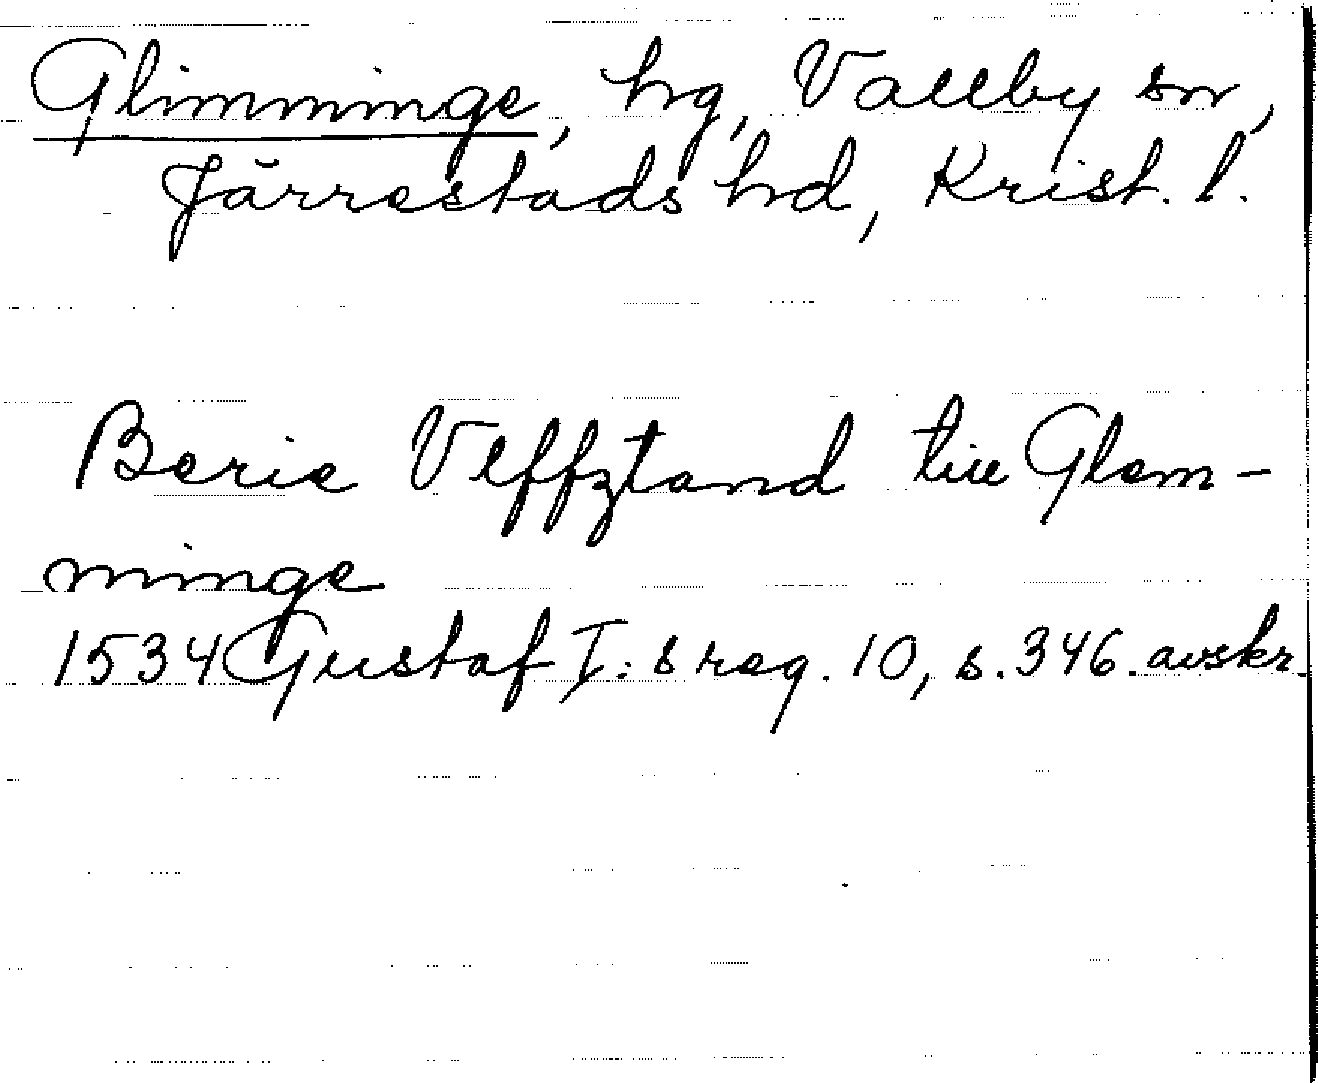 Glimminge, hg, Vallby sn,
Järrestads hd, Krist. l.
Berie Vlffztand till Glem-
minge
1534 Gustaf I:s reg. 10, s. 346. avskr.